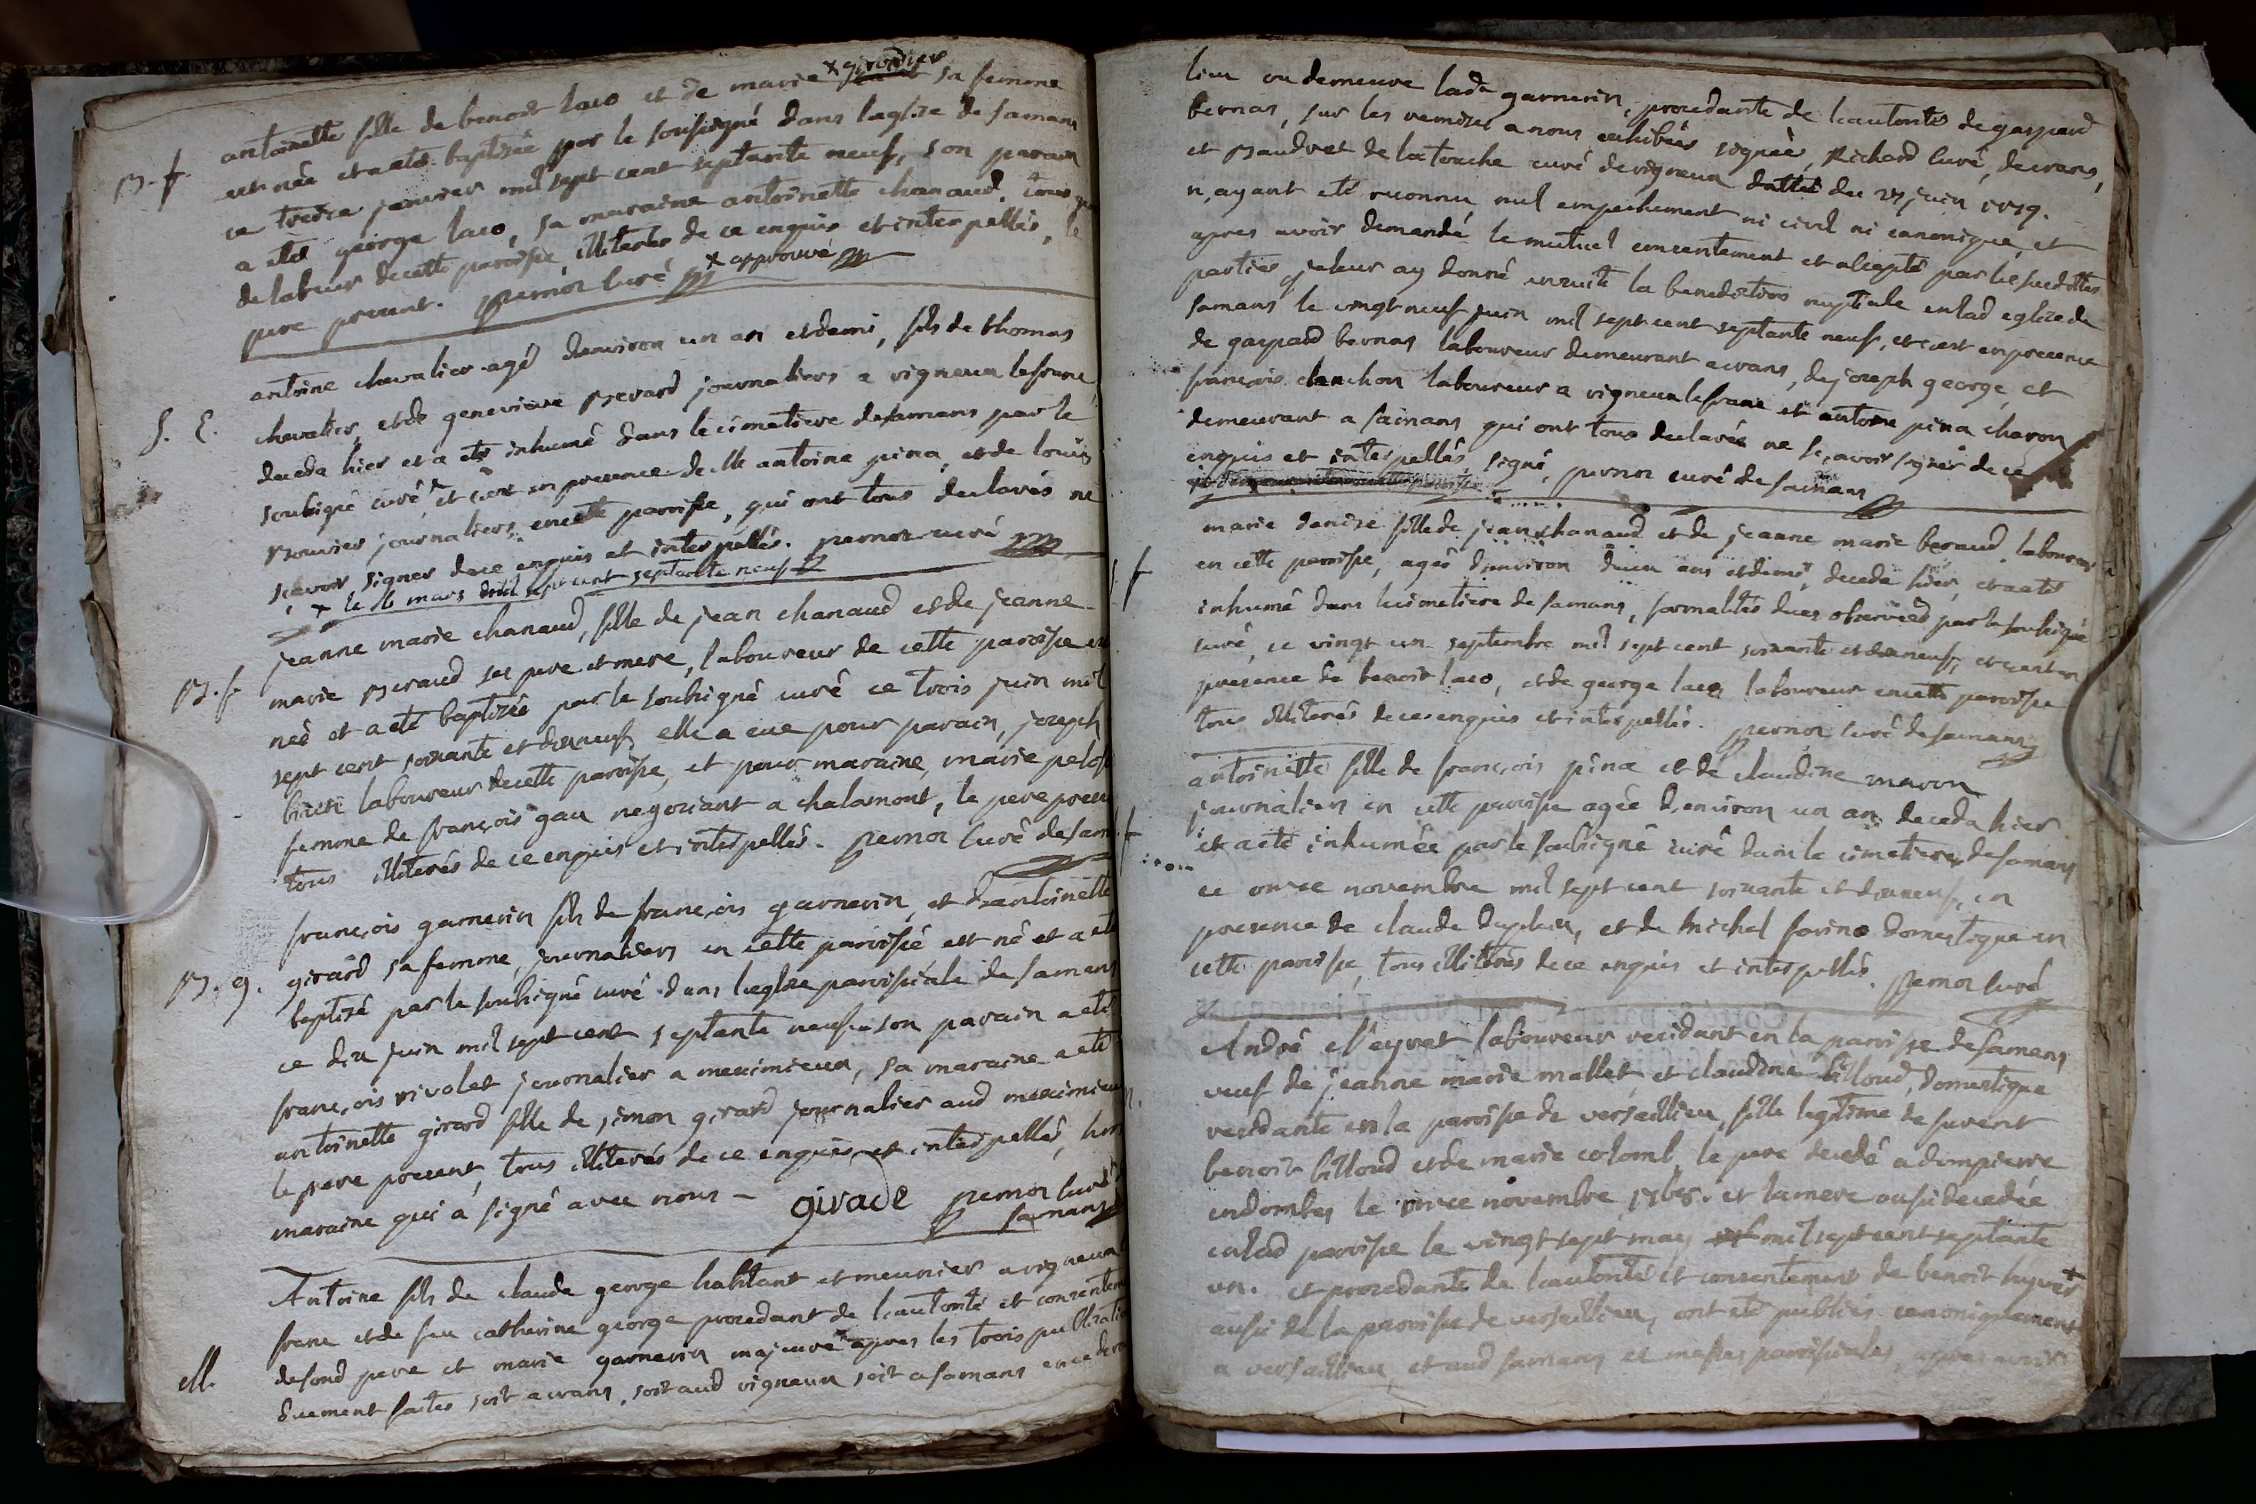 antoinette fille de benoit laco et de marie × girondier sa femme
B. f. est née et a eté baptisée par le soussigné dans leglise de samans
ce treize janvier mil sept cent septante neuf, son parain
a eté george laco, sa maraine antoinette chanaud, tous
de labeur de cette paroisse, illiterés de ce enquis et interpellés, le
pere present. pernon curé × approuvé
antoine chevalier agé denviron un an et demi, fils de thomas
S. E. chevalier, et de genevieve Berard journaliers a vigneux lefranc,
deceda hier et a eté inhumé dans le cimetiere de samans par le
soubsigné curé × et c'est en presence de Me antoine pina, et de louis
Bouvier journaliers en cette paroisse, qui ont tous declarés ne
sçavoir signer de ce enquis et interpellés. pernon curé
× le mars mil sept cent septante neuf
jeanne marie chanaud, fille de jean chanaud et de jeanne
B. f. marie Beraud ses pere et mere, laboureur de cette paroisse est
née et a eté baptisée par le soubsigné curé ce trois juin mil
sept cent soixante et dixneuf, elle a eue pour parain, joseph
laboureur de cette paroisse, et pour maraine, marie
femme de françois gau negotiant a chalamont, le pere present
tous illiterés de ce enquis et interpellés. pernon curé de sam
françois garnerin fils de françois garnerin, et d'antoinette
B. g. girard sa femme, journaliers en cette paroisse est né et a eté
baptisé par le soubsigné curé dans leglise paroissiale de samans
ce dix juin mil sept cent septante neuf son parain a eté
françois rivolet journalier a meximieux, sa maraine a eté
antoinette girard fille de simon girard journalier aud meximieux
le pere present, tous illiterés de ce enquis et interpellés, hors
maraine qui a signé avec nous – girade pernon curé
samans
Antoine fils de claude george habitant et meunier a vigneux
franc et de feu catherine george procedant de l'autorité et consentement
M. de sond pere et marie garnerin majeure apres les trois publications
duement faites soit a crans, soit aud vigneux soit a samans
lieu ou demeure lade garnerin, procedante de l'autorité de gaspard
bernas, sur les remises a nous exhibées signées, Richard curé, de crans,
et Baudrat de latouche curé de vigneux dattée du 27 juin 1779.
n'ayant eté reconnu nul empechement ni civil ni canonique, et
apres avoir demandé le mutuel consentement et accepté par les susdittes
parties je leur ay donné ensuite la benediction nuptiale en lad eglise de
samans le vingt neuf juin mil sept cent septante neuf, et c'est en presence
de gaspard bernas laboureur demeurant a crans, de joseph george, et
françois clanchon laboureur a vigneux lefranc et antoine pina charon
demeurant a samans qui ont tous declarés ne sçavoir signer de ce
enquis et interpellés signé, pernon curé de samans
marie denise fille de jean chanaud et de jeanne marie beraud, laboureur
f en cette paroisse, agée d'environ deux ans et demi, deceda hier, et a eté
inhumé dans le cimetiere de samans, formalités dues observées par le soubsigné
curé, ce vingt un septembre mil sept cent soixante et dixneuf, et c'est en
presence de benoit laco, et de george laco, laboureur en cette paroisse
tous illiterés de ce enquis et interpellés. pernon curé de samans
antoinette fille de françois pina et de claudine maron
f journaliers en cette paroisse agée d'environ un an, deceda hier
et a eté inhumée par le soubsigné curé dans le cimetiere de samans
ce onze novembre mil sept cent soixante et dixneuf, en
presence de claude duplain, et de michel sorino domestique en
cette paroisse, tous illiterés de ce enquis et interpellés. pernon curé
André Neyret laboureur residant en la paroisse de samans
veuf de jeanne marie mallet et claudine billoud, domestique
residante en la paroisse de versailleu, fille legitime de
benoit billoud et de marie colomb, le pere decedé a dompierre
en dombes le onze novembre et la mere aussi decedée
en lad paroisse le vingt sept may mil sept cent septante
un. et procedante de l'autorité et consentement de benoit
aussi de la paroisse de versailleu, ont eté publiés canoniquement
a versailleu, et aud samans et messes paroissiales, apres avoir